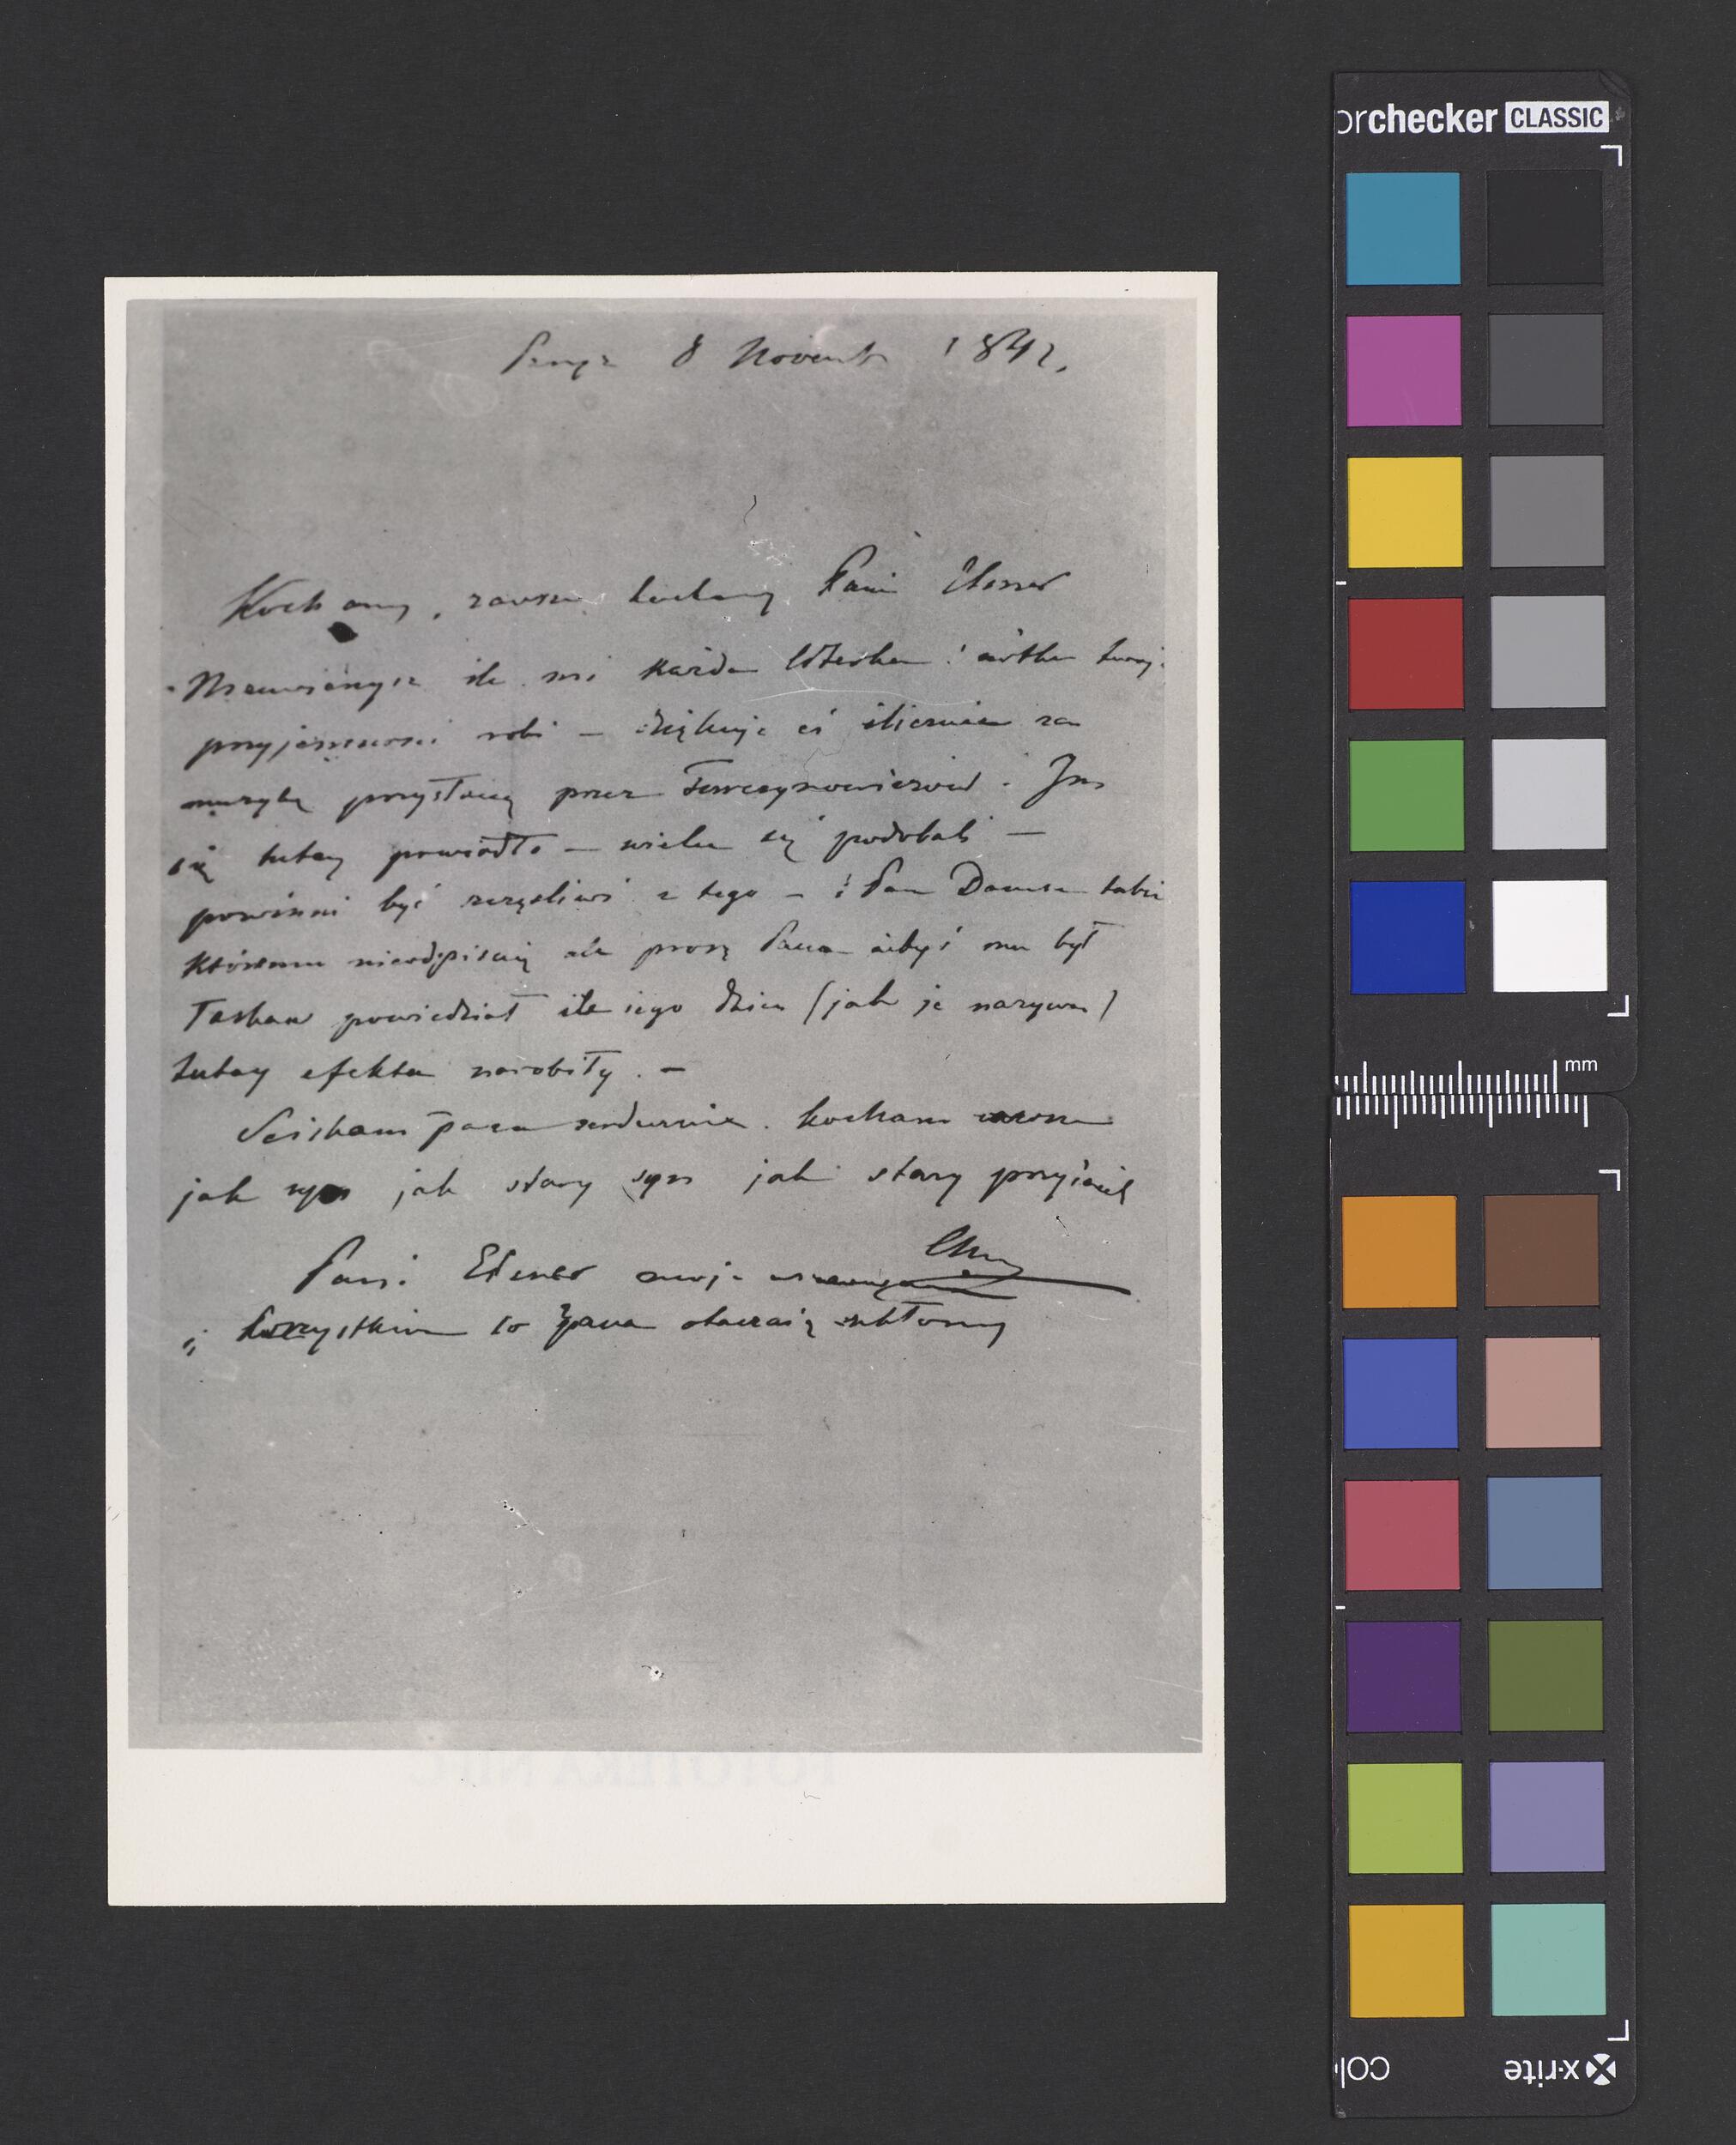 Paryż 8 Novemb 1842.
Kochany, zawsze kochany Panie Elsner
Niewierzysz ile mi każda literka i nótka twoja
przyjemności robi – dziękuję ci ślicznie za
muzykę przysłaną przez Turczynowiczów. Im
się tutay powiodło – wielu się podobali –
powinni być szczęśliwi z tego – i Pan Damse także
któremu nieodpisuię ale proszę Pana ażebyś mu był
łaskaw powiedział ile iego dzieci (jak je nazywa)
tutay efektu narobiły. –
Sciskam pana serdecznie. kocham zawsze
jak syn jak stary syn jak stary przyiaciel
Ch
Pani Elsner moje
i wszystkim co pana otaczaią ukłony
orchecker CLASSIC
mm
x-rite
colo
FOTOTEKA NIFC